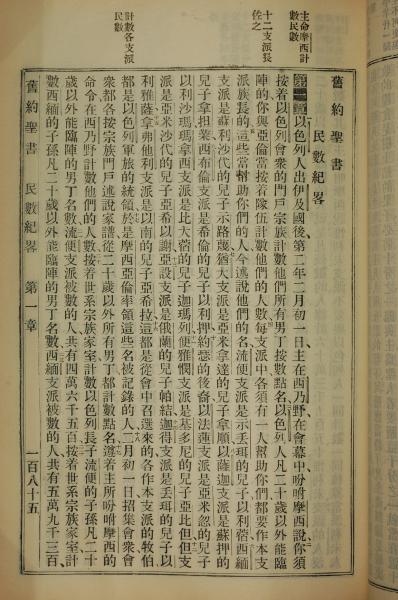 主命摩西計
數民數
十二支派長
佐之
計數各支派
民數
舊約聖書
民數紀畧
第一章以色列人出伊及國後第二年二月初一日主在西乃野在會幕中吩咐摩西說你須
按着以色列會衆的門戶宗族計數他們所有男丁按數點名以色列人凡二十歲以外能臨
陣的你與亞倫當按着隊伍計數他們的人數每支派中各須有一人幫助你們都要作本支
派族長的這些當幫助你們的人今遴說他們的名流便支派是示丟珥的兒子以利蓿西緬
支派是蘇利沙代的兒子示路蔑猶大支派是亞米拿達的兒子拿順以薩迦支派是蘇押的
兒子拿坦業西布倫支派是希倫的兒子以利押約瑟的後裔以法蓮支派是亞米忽的兒子
以利沙瑪瑪拿西支派是比大蓿的兒子迦瑪列便雅憫支派是基多尼的兒子亞比但但支
派是亞米沙代的兒子亞希以謝亞設支派是俄蘭的兒子帕結迦得支派是丟珥的兒子以
利雅薩拿弗他利支派是以南的兒子亞希拉這都是從會中召選來的各作本支派的牧伯
都是以色列軍旅的統領於是摩西亞倫率領這些名被記錄的人二月初一日招集會衆會
衆都各按宗族門戶述說家譜從二十歲以外所有男丁都計數點名遵着主所吩咐摩西的
命令在西乃野計數他們的人數按着世系宗族家室計數以色列長子流便的子孫凡二十
歲以外能臨陣的男丁名數流便支派被數的人共有四萬六千五百按着世系宗族家室計
數西緬的子孫凡二十歲以外能臨陣的男丁名數西緬支派被數的人共有五萬九千三百
舊約聖書 民數紀畧 第一章 一百八十五